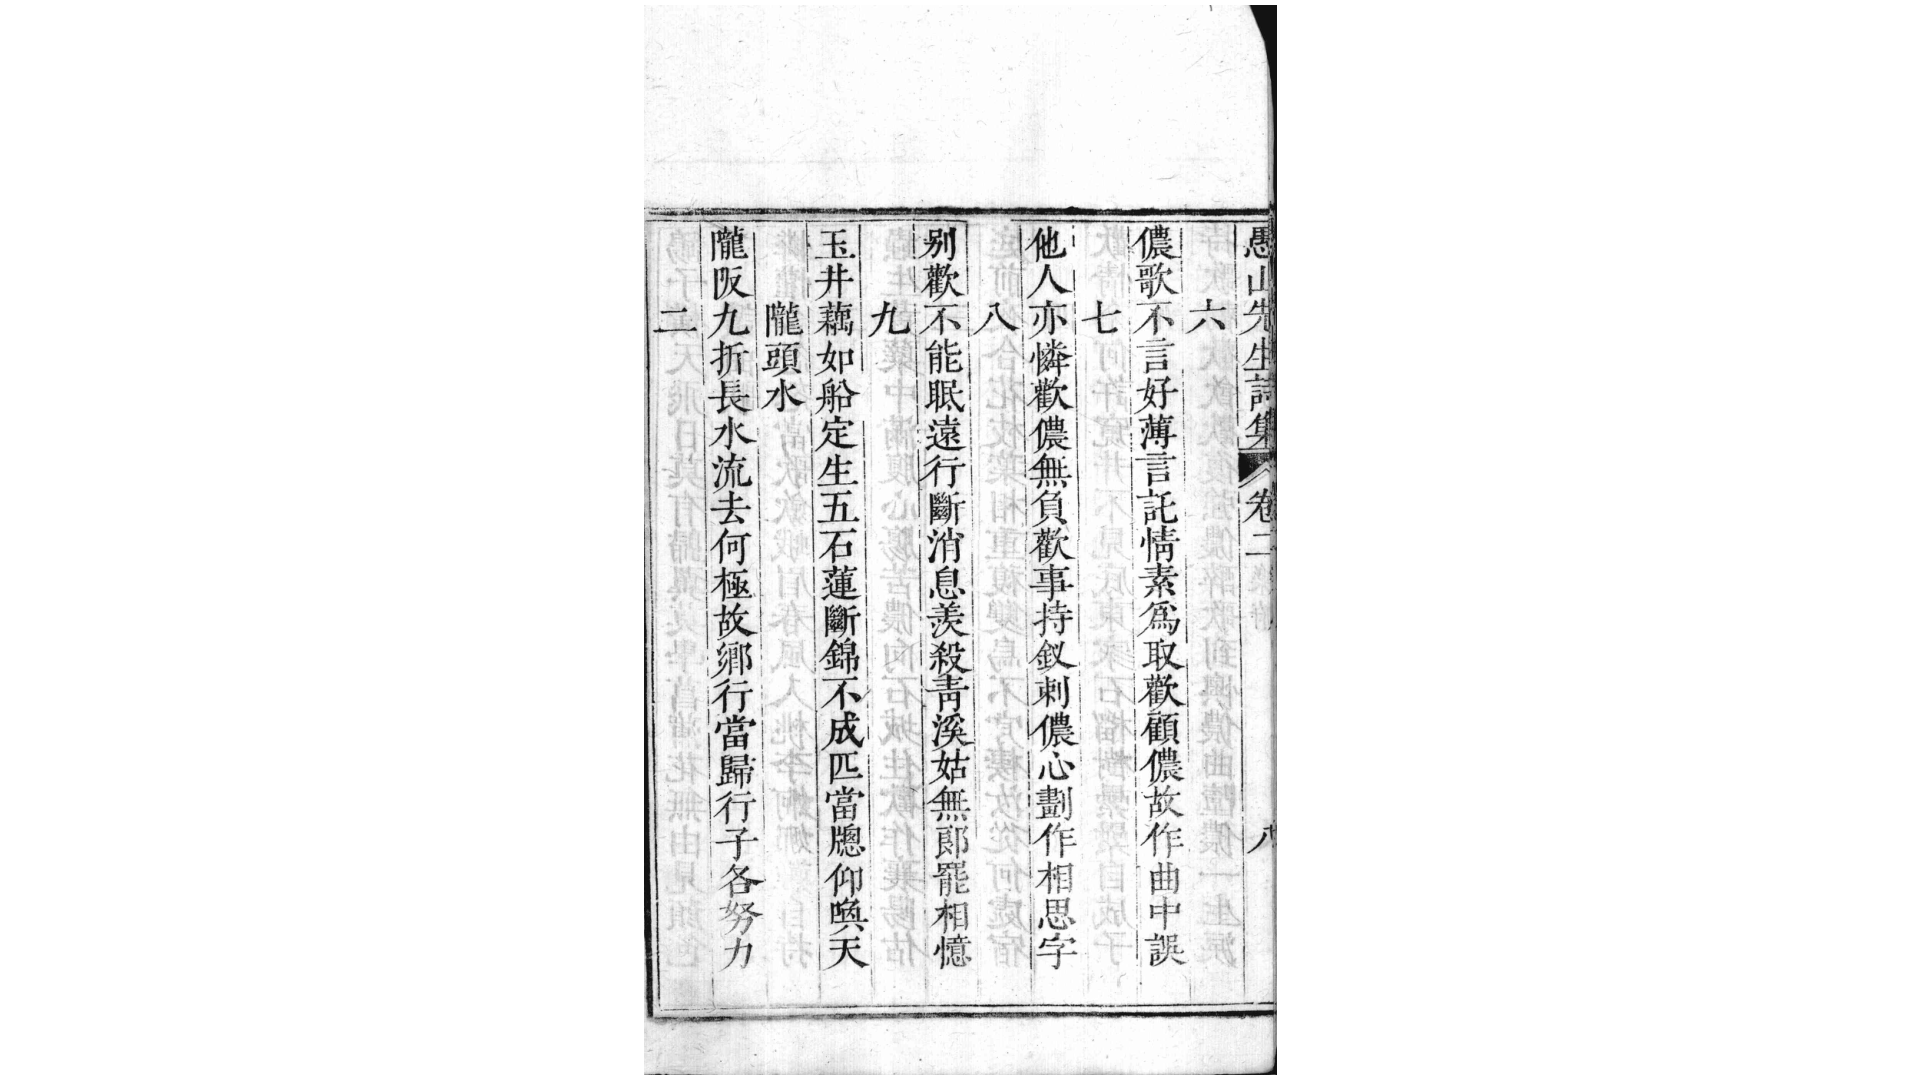 愚山先生詩集 卷二 八
六
儂歌不言好薄言託情素爲取歡顧儂故作曲中誤
七
他人亦憐歡儂無負歡事持釵刺儂心劃作相思字
八
别歡不能眠遠行斷消息羨殺靑溪姑無郎罷相憶
九
玉井藕如船定生五石蓮斷錦不成匹當牕仰喚天
隴頭水
隴阪九折長水流去何極故鄉行當歸行子各努力
二